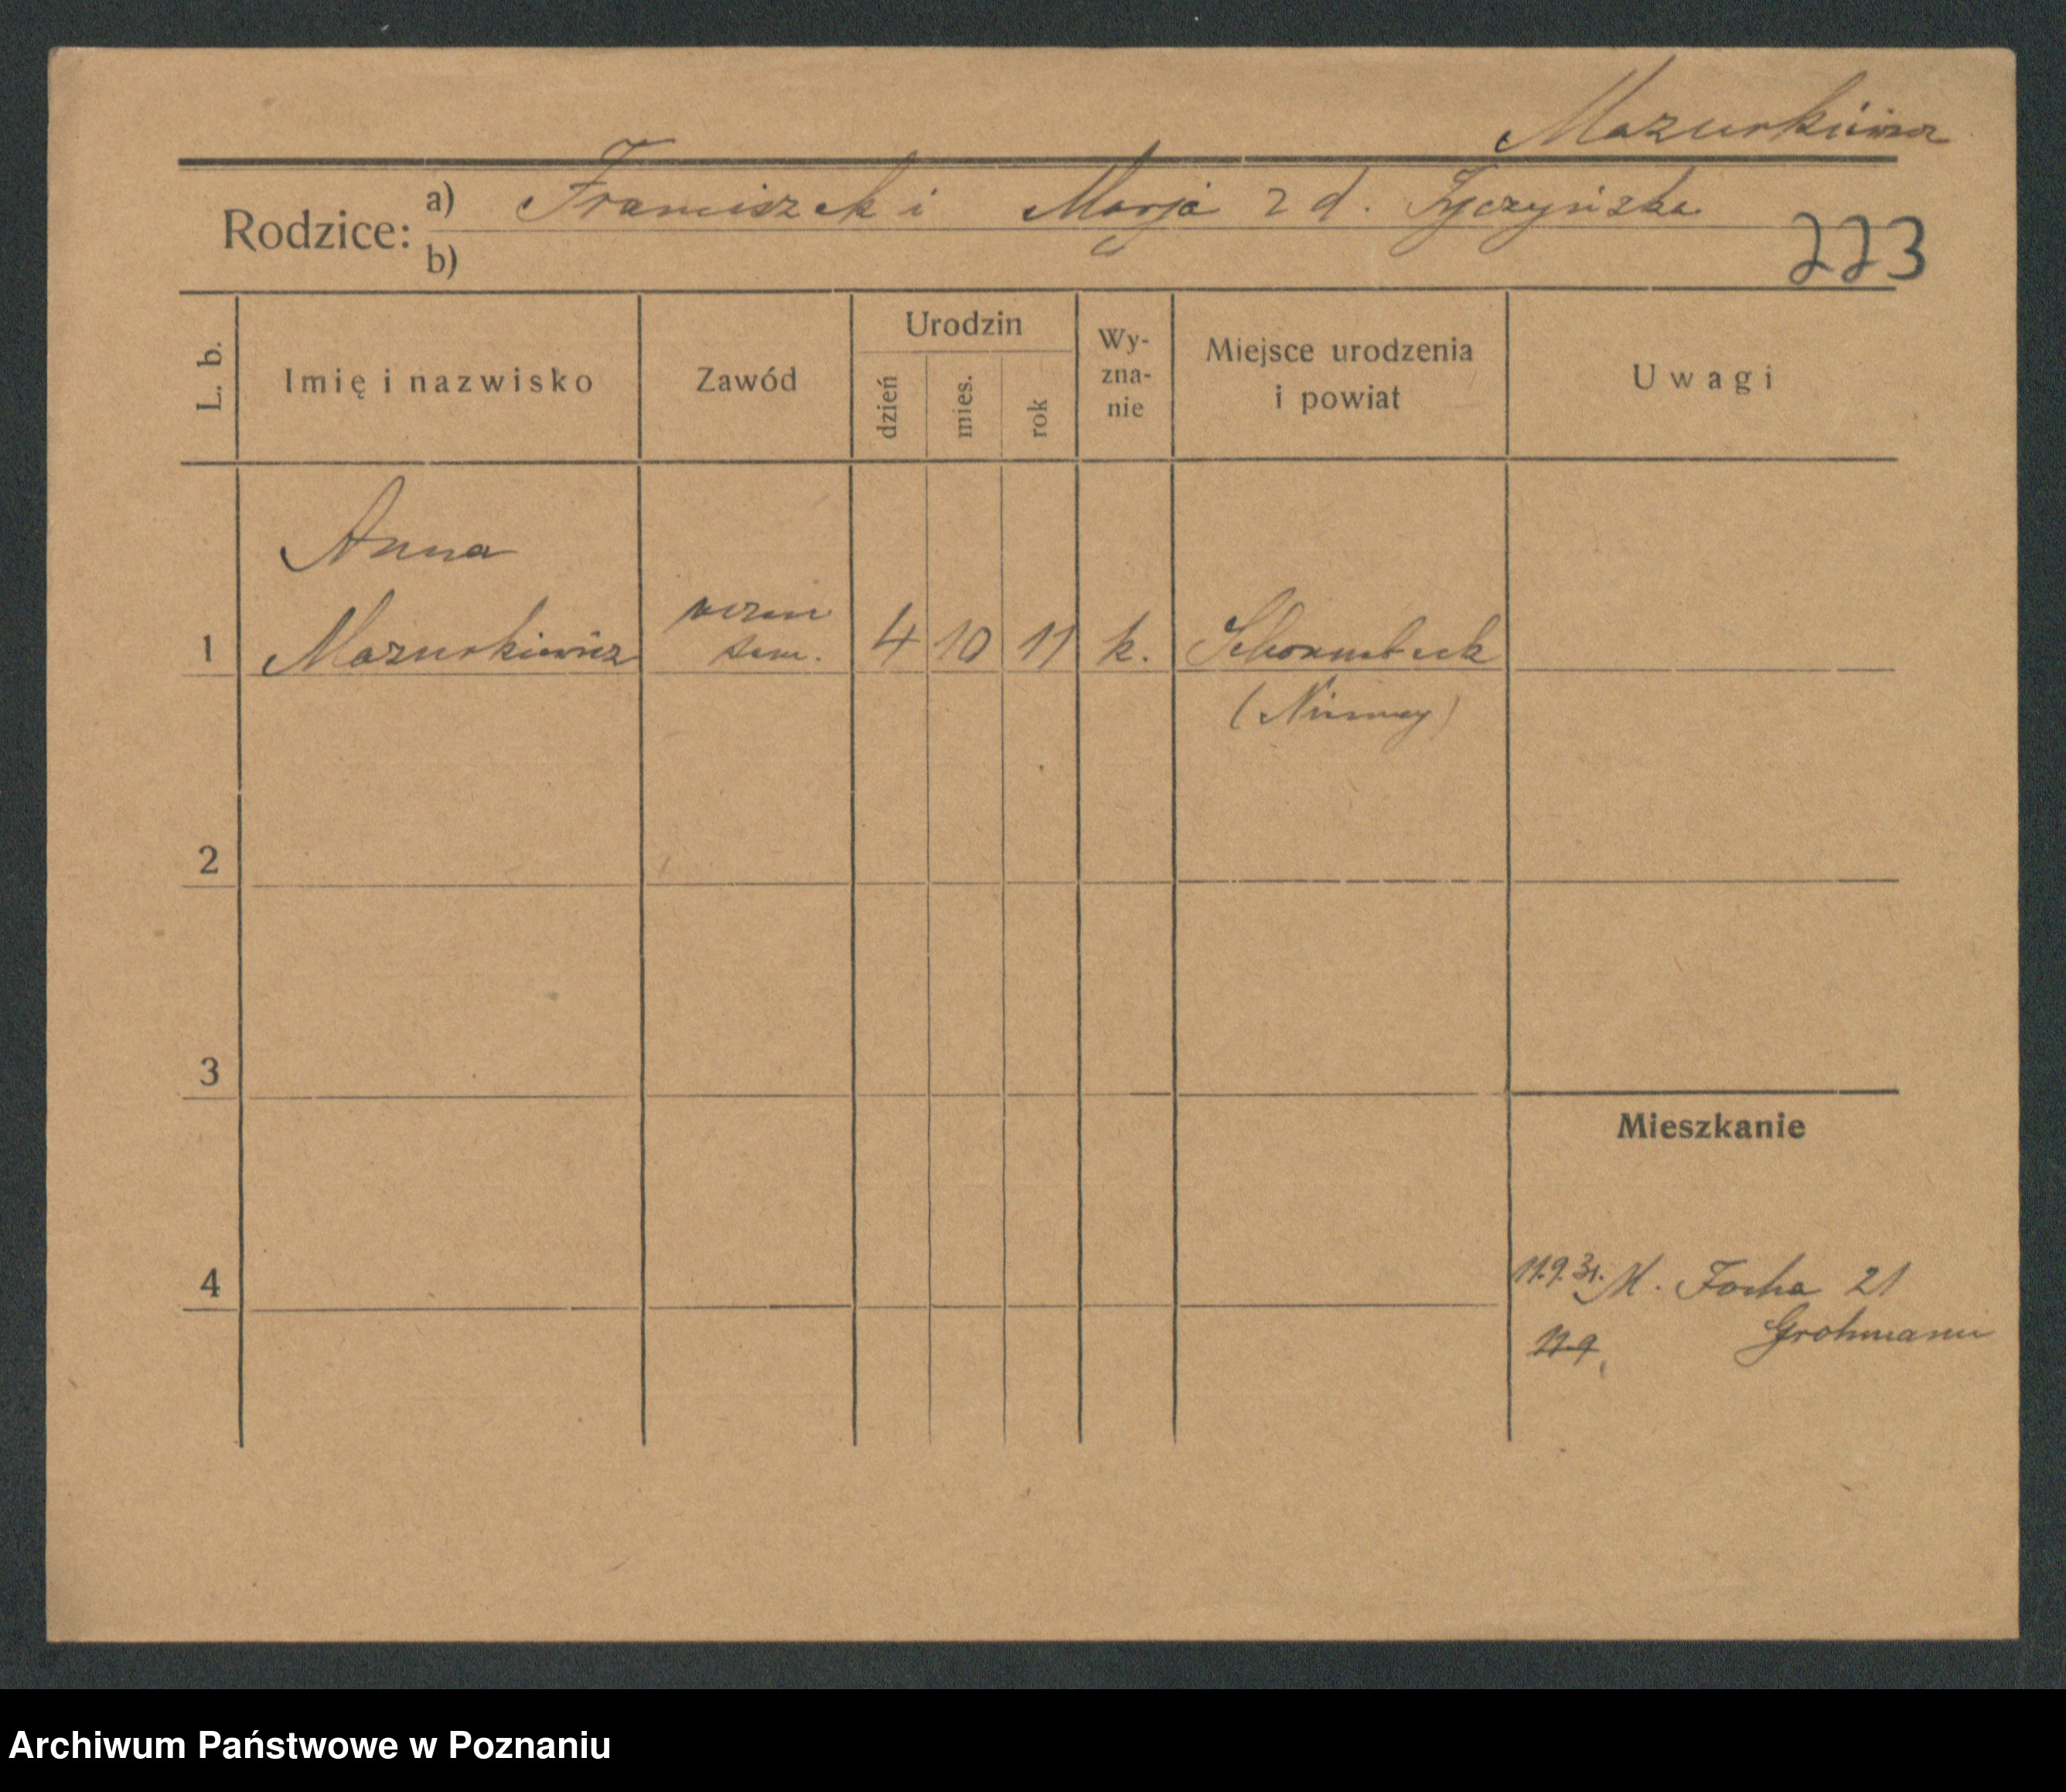 Mazurkiewicz
Rodzice: a) Franciszek i Marja z d. Życzyńska
b)
223
L. b.
Imię i nazwisko
Zawód
Urodzin
dzień
mies.
rok
Wy-
zna-
nie
Miejsce urodzenia
i powiat
Uwagi
Anna
1 Mazurkiewicz
uczen
sem.
4 10 11 k.
(Niemcy)
2
3
Mieszkanie
4
11.9.31. M. Focha 21
11.9. Grohmann
Archiwum Państwowe w Poznaniu